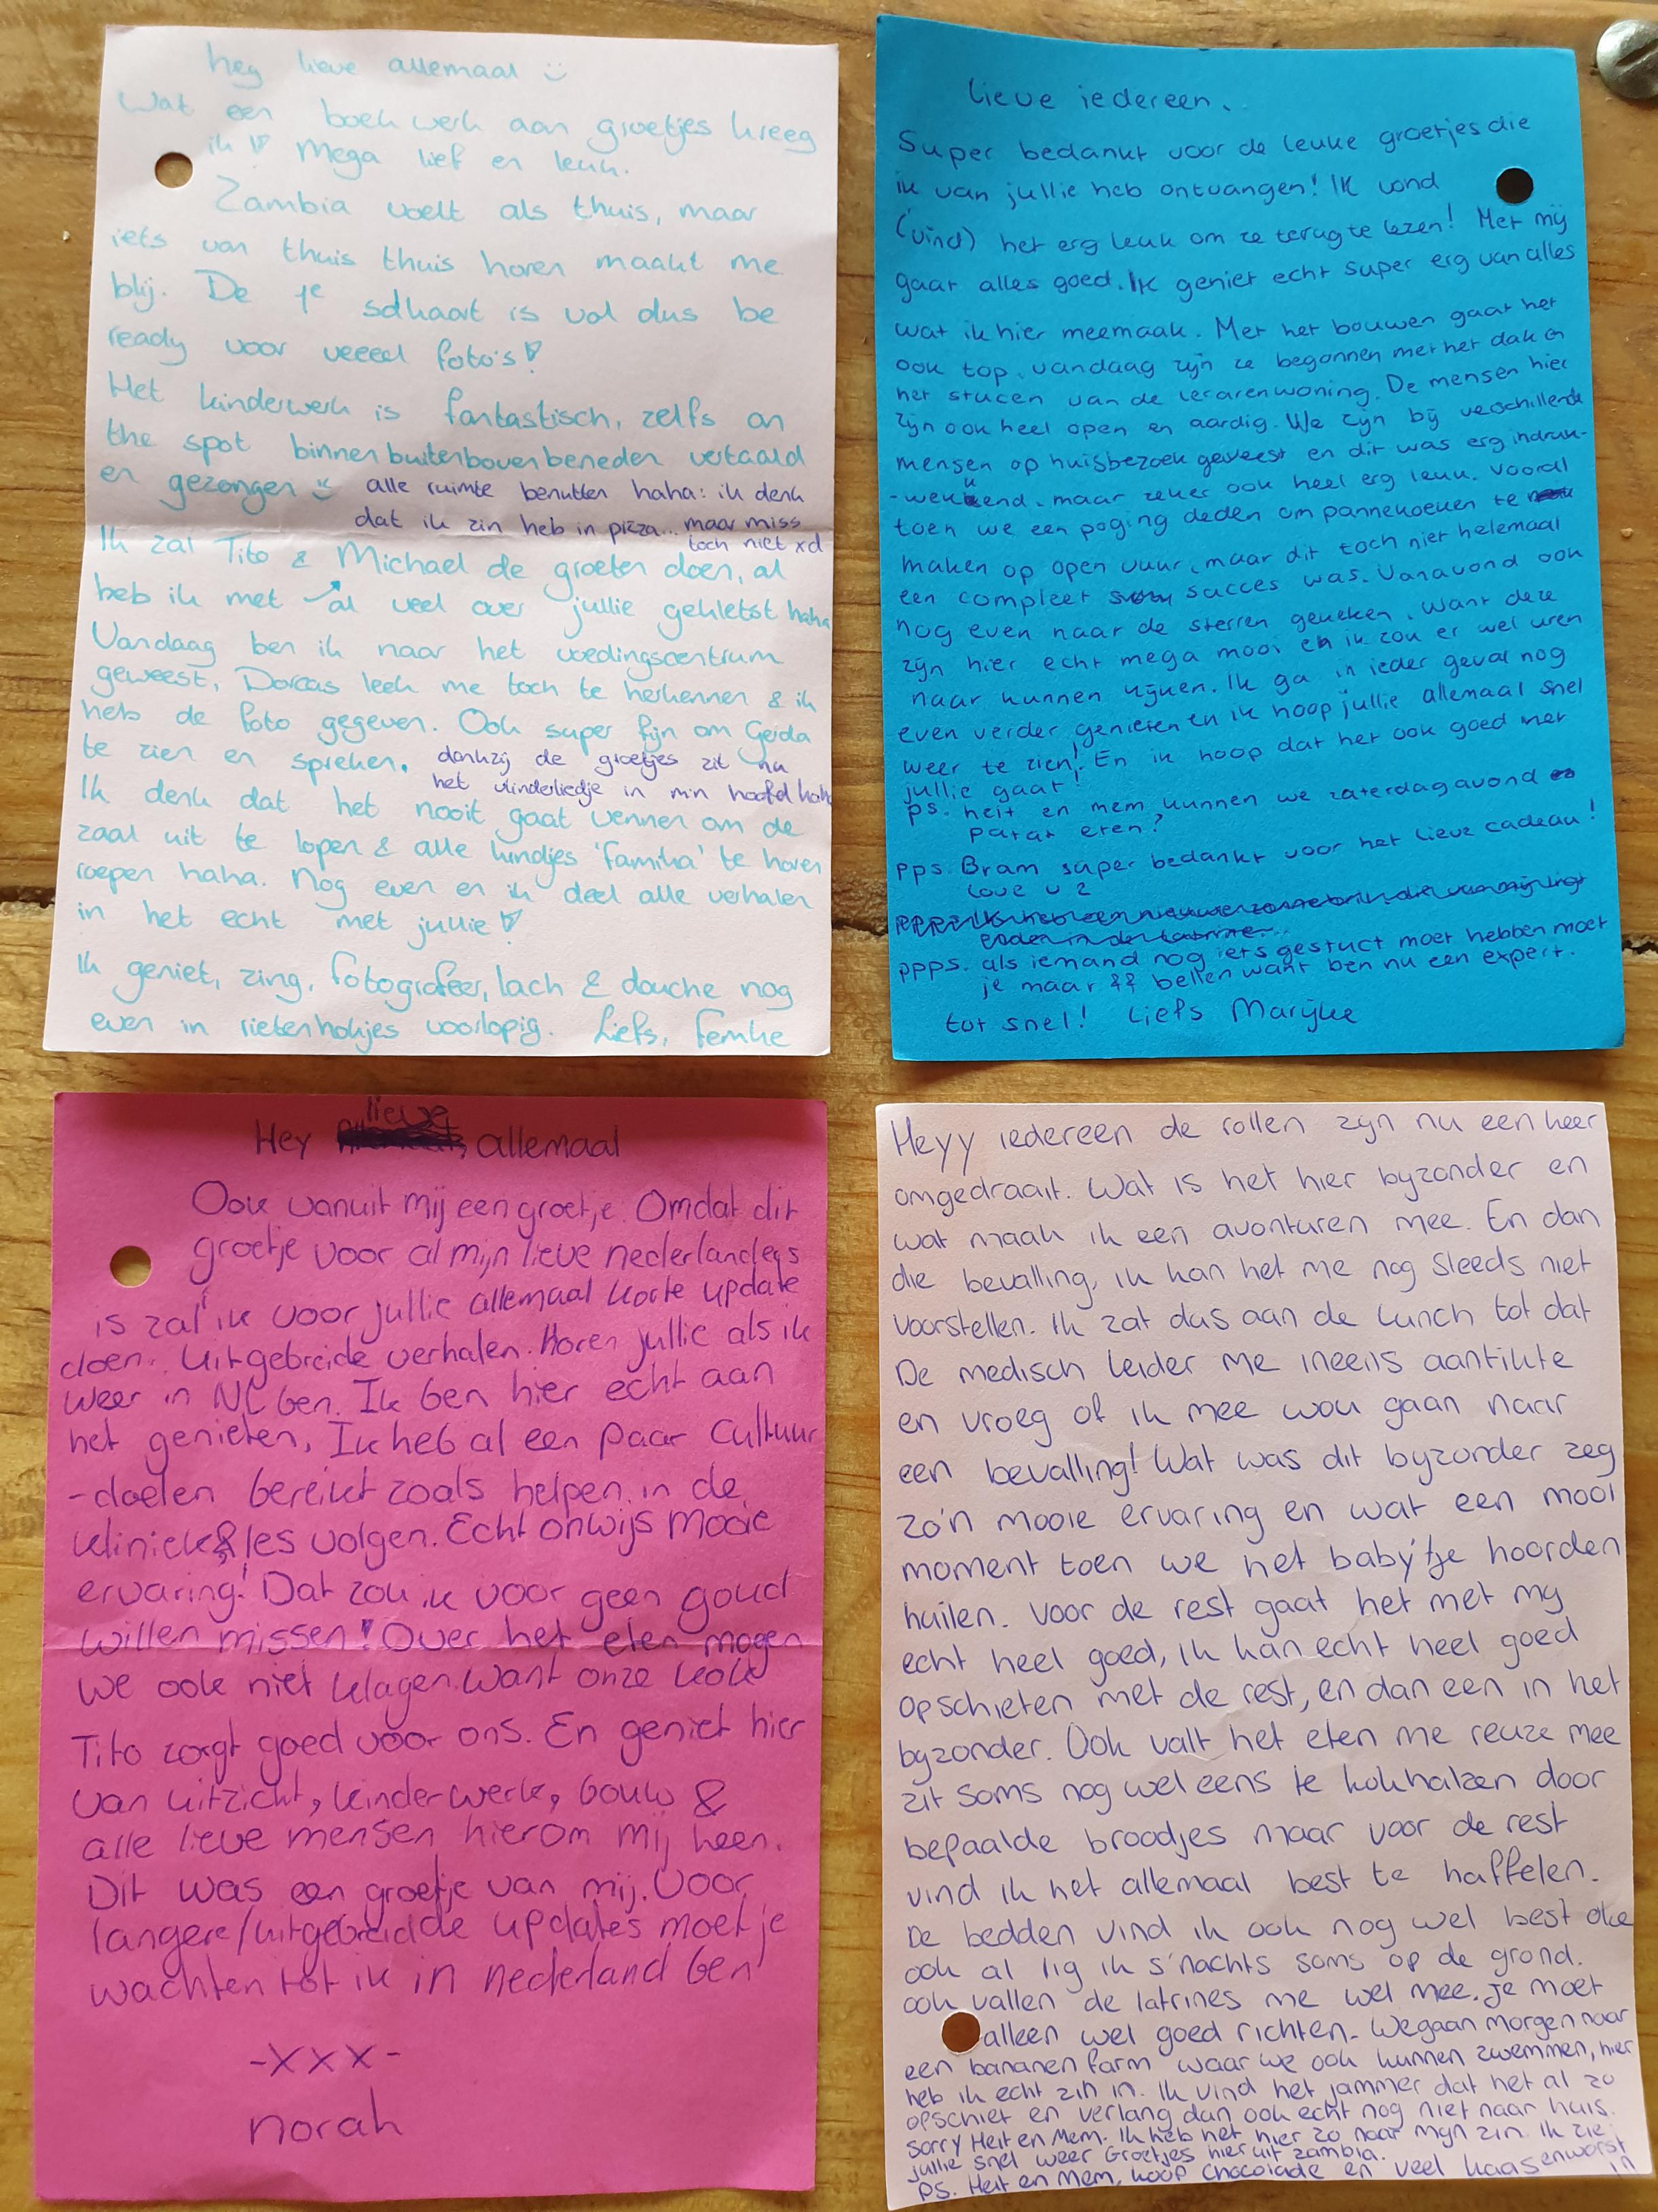 hey lieve allemaal :)
Wat een boekwerk aan groetjes kreeg
ik!! Mega lief en leuk.
Zambia voelt als thuis, maar
iets van thuis thuis horen maakt me
blij. De 1e sdkaart is vol dus be
ready voor veeeel foto's!
Het kinderwerk is fantastisch, zelfs on
the spot binnenbuitenbovenbeneden vertaald
en gezongen :) alle ruimte benutten haha: ik denk
dat ik zin heb in pizza... maar miss
toch niet xd
Ik zal Tito & Michael de groeten doen, al
heb ik met ↗ al veel over jullie gekletst haha
Vandaag ben ik naar het voedingscentrum
geweest, Dorcas leek me toch te herkennen & ik
heb de foto gegeven. Ook super fijn om Gerda
te zien en spreken. dankzij de groetjes zit nu
het vlinderliedje in m'n hoofd hah
Ik denk dat het nooit gaat wennen om de
zaal uit te lopen & alle kindjes 'famika' te horen
roepen haha. Nog even en ik deel alle verhalen
in het echt met jullie!
Ik geniet, zing, fotografeer, lach & douche nog
even in rietenhokjes voorlopig. Liefs, Femke
Lieve iedereen,
Super bedankt voor de leuke groetjes die
ik van jullie heb ontvangen! Ik vond
(vind) het erg leuk om ze terug te lezen! Met mij
gaat alles goed. Ik geniet echt super erg van alles
wat ik hier meemaak. Met het bouwen gaat het
ook top. vandaag zijn ze begonnen met het dak en
het stucen van de lerarenwoning. De mensen hier
zijn ook heel open en aardig. We zijn bij verschillende
mensen op huisbezoek geweest en dit was erg indruk-
-wekkend. maar zeker ook heel erg leuk. vooral
toen we een poging deden om pannekoeken te
maken op open vuur, maar dit toch niet helemaal
een compleet succes was. Vanavond ook
nog even naar de sterren gekeken. Want deze
zijn hier echt mega mooi en ik zou er wel uren
naar kunnen kijken. Ik ga in ieder geval nog
even verder genieten en ik hoop jullie allemaal snel
weer te zien! En ik hoop dat het ook goed met
jullie gaat!
ps. heit en mem, kunnen we zaterdagavond
patat eten?
pps. Bram super bedankt voor het lieve cadeau!
love u 2
pppsik heb een nieuwe zonnebril die van mij ligt
ppps. als iemand nog iets gestuct moet hebben moet
je maar ff bellen want ben nu een expert.
tot snel! Liefs Marijke
Hey lieve allemaal
Ook vanuit mij een groetje. Omdat dit
groetje voor al mijn lieve nederlanders
is zal ik voor jullie allemaal korte update
doen. Uitgebreide verhalen. Horen jullie als ik
weer in NL ben. Ik ben hier echt aan
het genieten, Ik heb al een paar cultuur
-doelen bereikt zoals helpen in de
kliniek & les volgen. Echt onwijs mooie
ervaring! Dat zou ik voor geen goud
willen missen! Over het eten mogen
we ook niet klagen. Want onze kok
Tito zorgt goed voor ons. En geniet hier
van uitzicht, kinderwerk, bouw &
alle lieve mensen hierom mij heen.
Dit was een groetje van mij. Voor
langere/uitgebreidde updates moet je
wachten tot ik in nederland ben
-xxx-
norah
Heyy iedereen de rollen zyn nu een keer
omgedraait. Wat is het hier byzonder en
wat maak ik een avonturen mee. En dan
die bevalling, ik kan het me nog steeds niet
voorstellen. Ik zat dus aan de lunch tot dat
De medisch leider me ineens aantikte
en vroeg of ik mee wou gaan naar
een bevalling! Wat was dit byzonder zeg
zo'n mooie ervaring en wat een mooi
moment toen we het baby'tje hoorden
huilen. Voor de rest gaat het met my
echt heel goed, ik kan echt heel goed
opschieten met de rest, en dan een in het
byzonder. Ook valt het eten me reuze mee
zit soms nog wel eens te kokhalzen door
bepaalde broodjes maar voor de rest
vind ik het allemaal best te haffelen.
De bedden vind ik ook nog wel best oke
ook al lig ik s'nachts soms op de grond.
ook vallen de latrines me wel mee. je moet
alleen wel goed richten. We gaan morgen naar
een bananen farm waar we ook kunnen zwemmen, hier
heb ik echt zin in. Ik vind het jammer dat het al zo
opschiet en verlang dan ook echt nog niet naar huis.
Sorry Heit en Mem. Ik heb het hier zo naar mijn zin. Ik zie
jullie snel weer Groetjes hier uit zambia.
PS. Heit en Mem, koop chocolade en veel kaasenworst
in